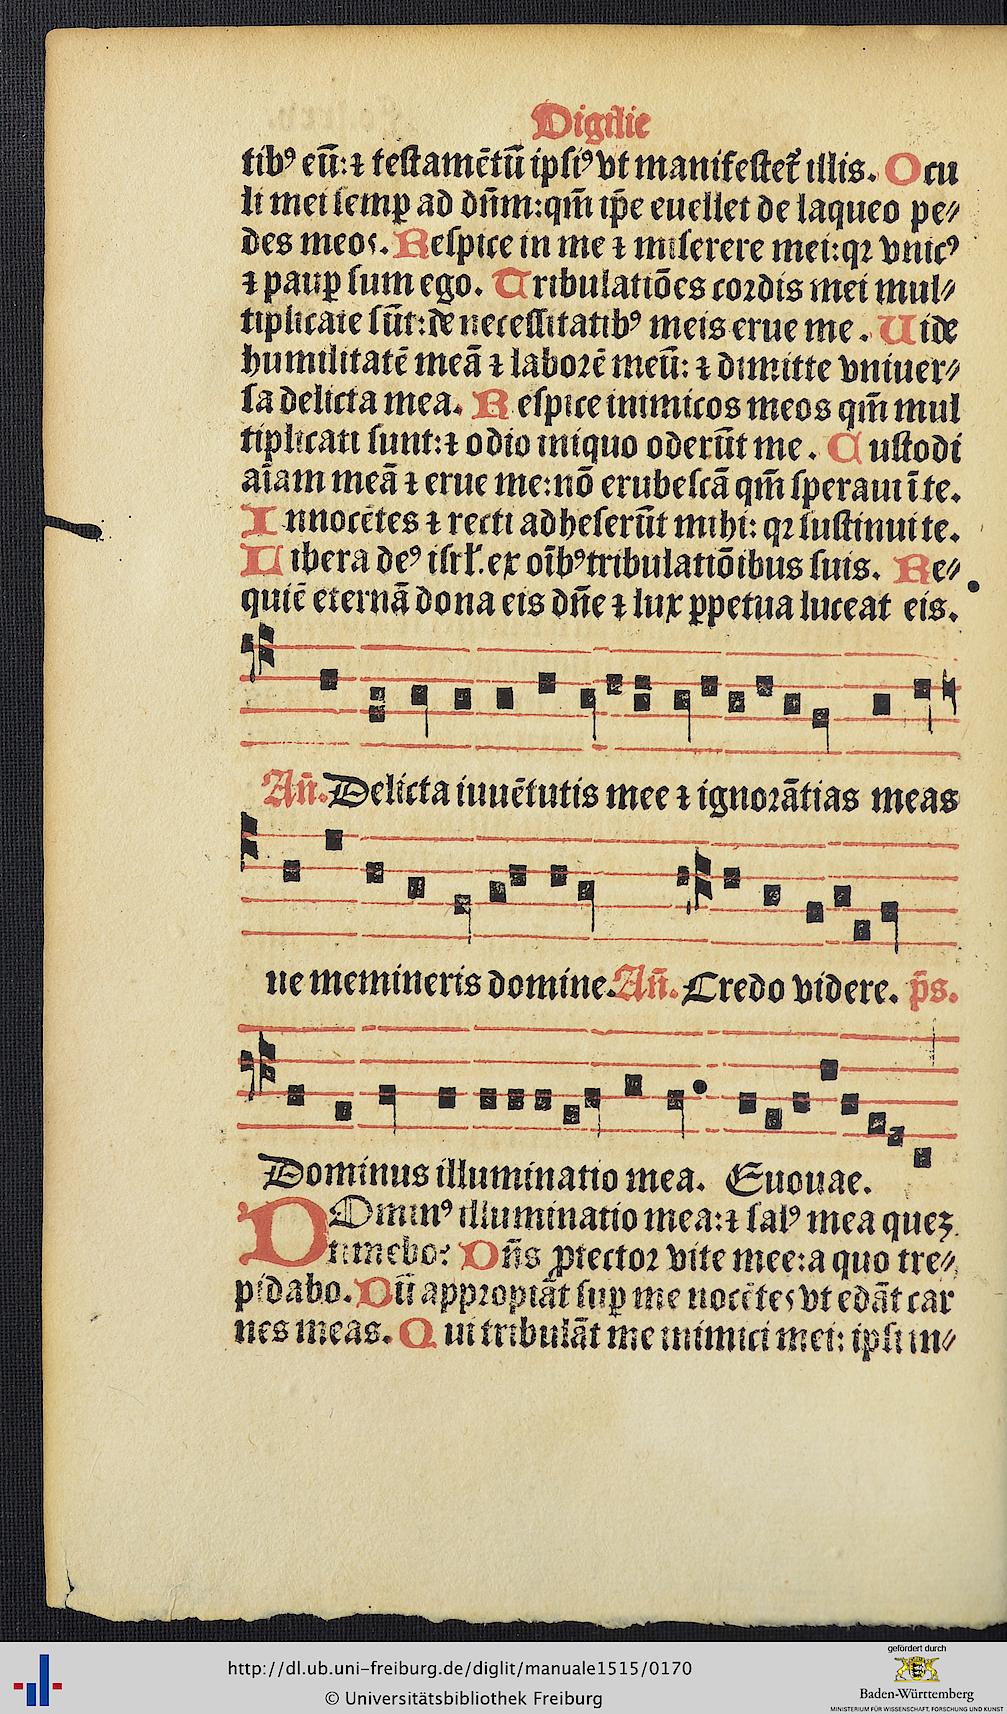 Vigilie
tibꝰ eū: ⁊ testamētū ipsiꝰ vt manifestet᷑ illis. Ocu
li mei semꝑ ad dn̄m: qm̄ ip̄e euellet de laqueo pe⸗
des meos. Respice in me ⁊ miserere mei: qꝛ vnicꝰ
⁊ pauꝑ sum ego. Tribulatiōes cordis mei mul⸗
tiplicate sūt: de necessitatibꝰ meis erue me. Uide
humilitatē meā ⁊ laborē meū: ⁊ dimitte vniuer⸗
sa delicta mea. Respice inimicos meos qm̄ mul
tiplicati sunt: ⁊ odio iniquo oderūt me. Custodi
aīam meā ⁊ erue me: nō erubescā qm̄ speraui ī te.
Innocētes ⁊ recti adheserūt mihi: qꝛ sustinui te.
Libera deꝰ isrl̓. ex oībꝰ tribulatiōibus suis. Re⸗
quiē eternā dona eis dn̄e ⁊ lux ꝑpetua luceat eis.
An̄. Delicta iuuētutis mee ⁊ ignorātias meas
ne memineris domine. An̄. Credo videre. p̄s.
Dominus illuminatio mea. Euouae.
DOminꝰ illuminatio mea: ⁊ salꝰ mea quez
timebo? Dn̄s ꝓtector vite mee: a quo tre⸗
pidabo. Dū appropiāt suꝑ me nocētes vt edāt car
nes meas. Qui tribulāt me inimici mei: ipsi in⸗
http://dl.ub.uni-freiburg.de/diglit/manuale1515/0170
© Universitätsbibliothek Freiburg
gefördert durch
Baden-Württemberg
MINISTERIUM FÜR WISSENSCHAFT, FORSCHUNG UND KUNST